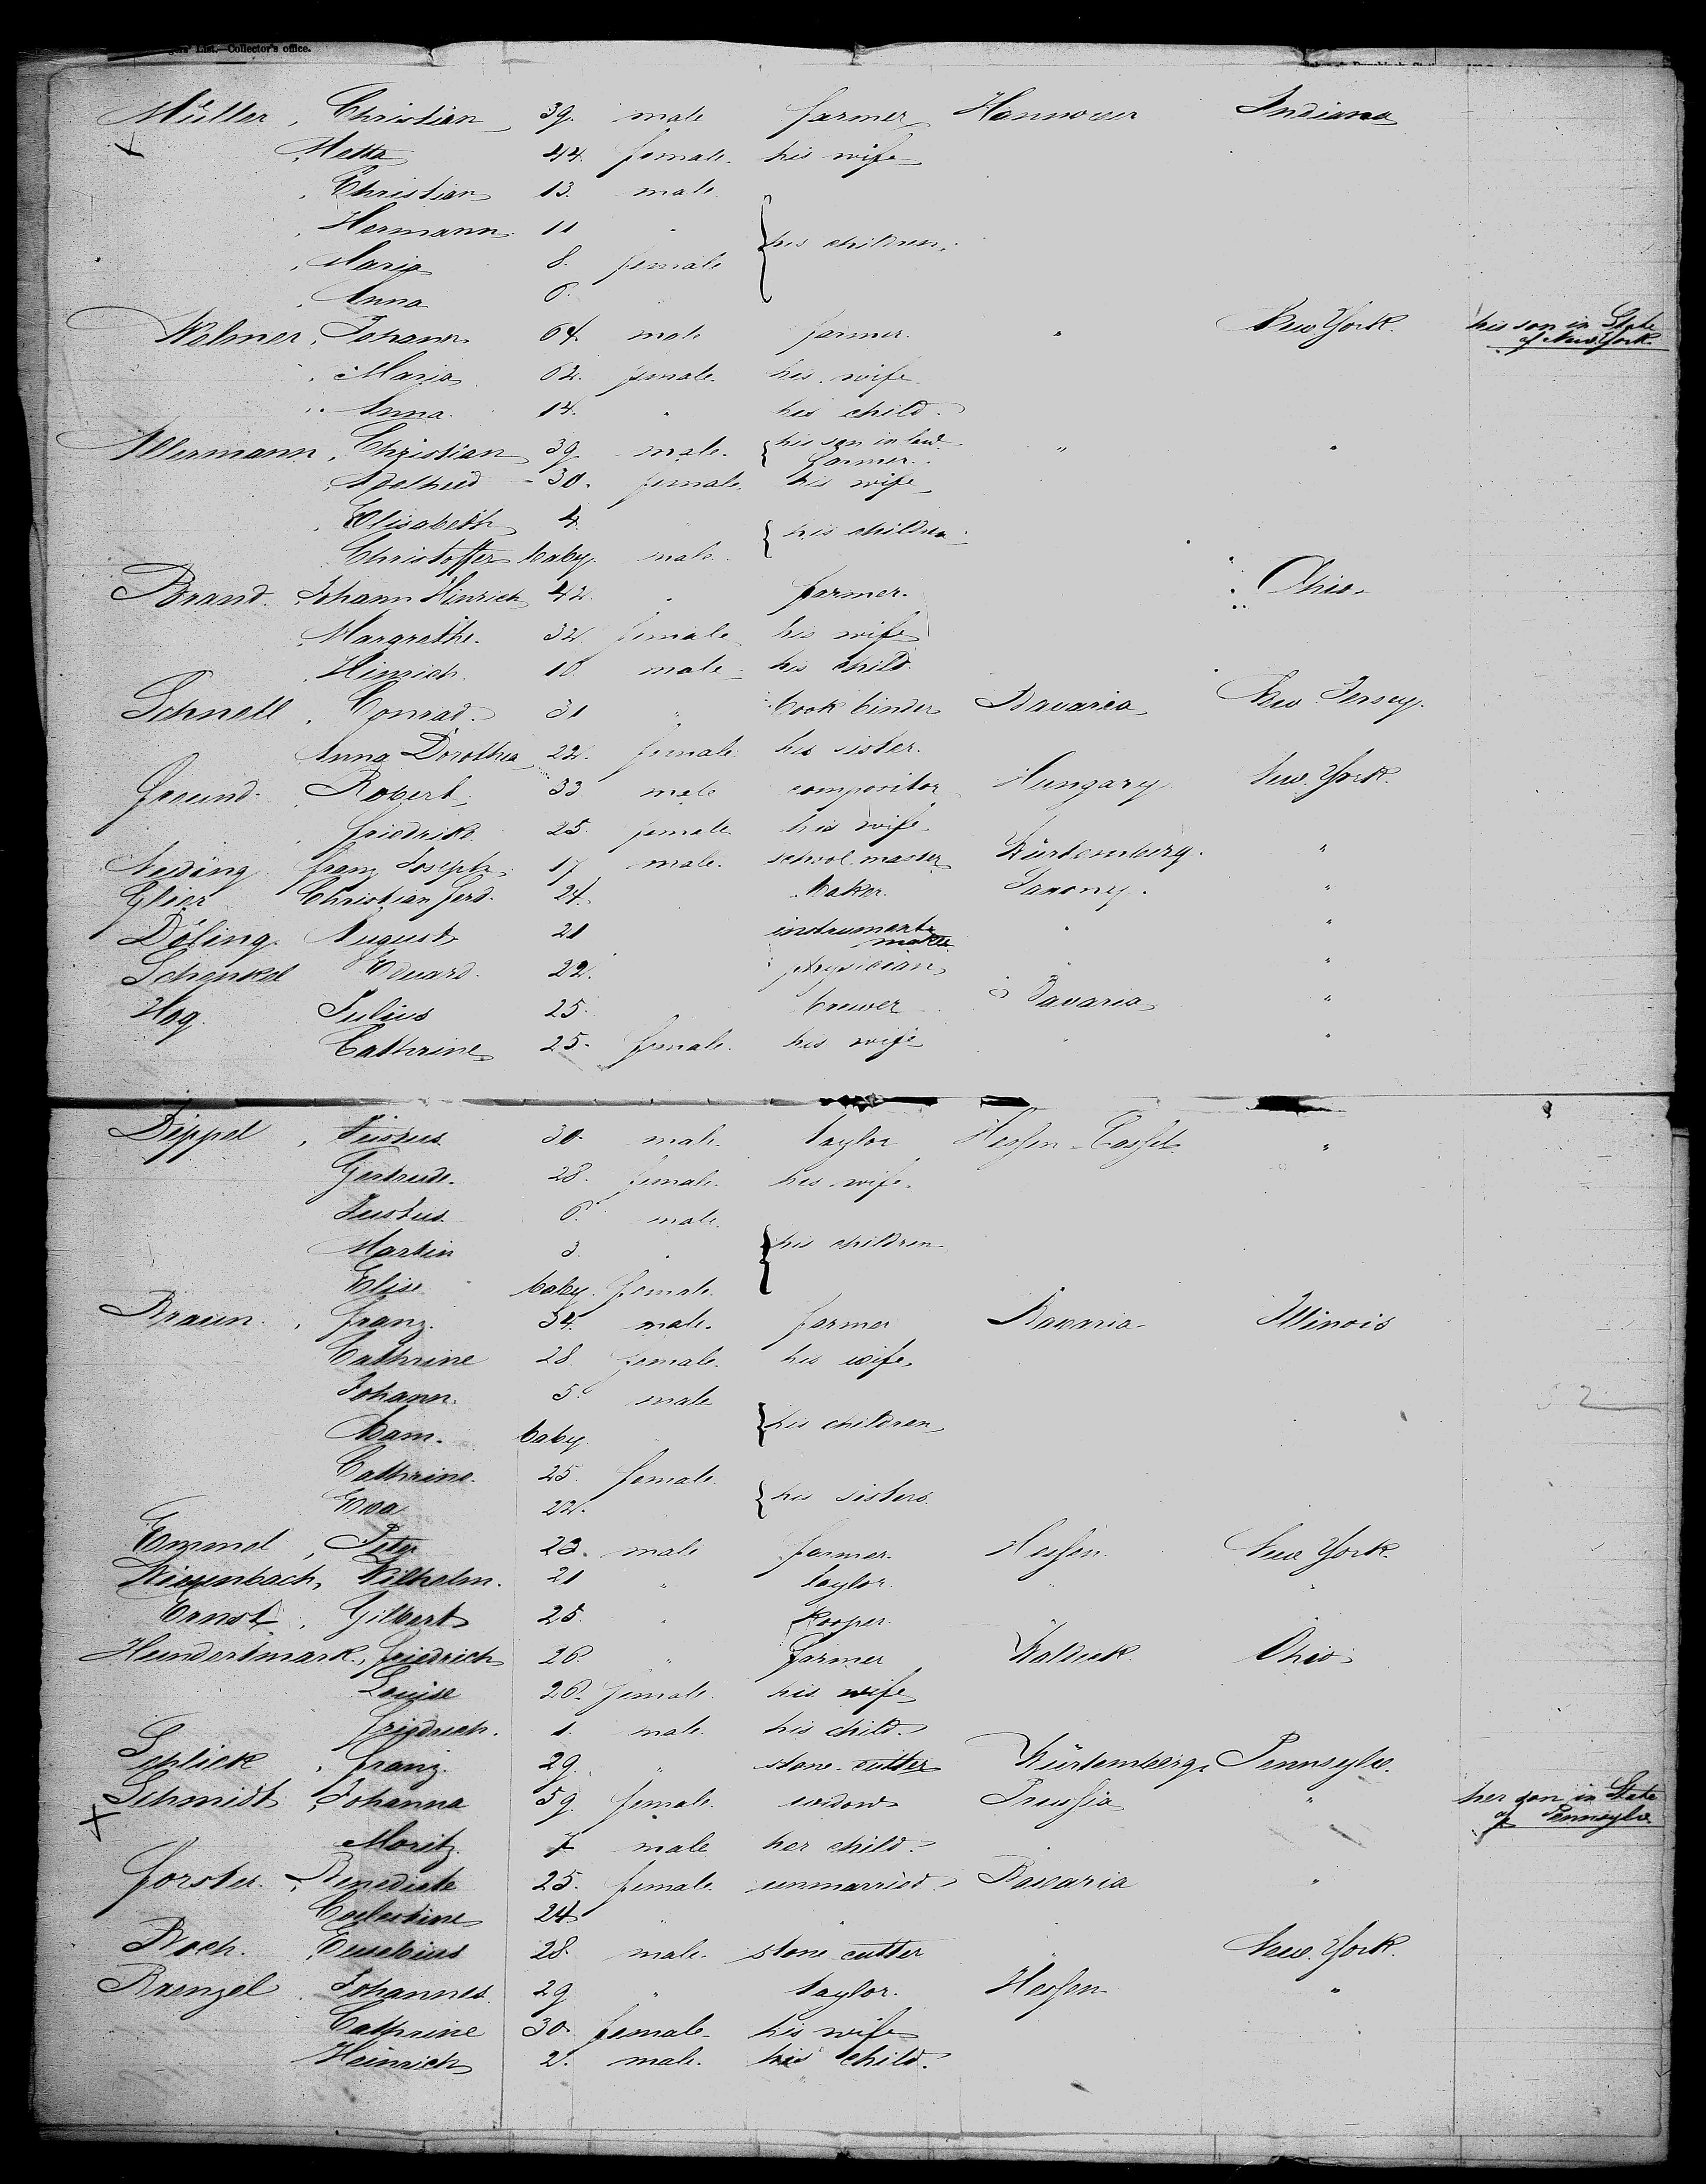 List.—Collector's office.
Müller, Christian 39. male farmer Hannover Indiana
Metta 44. female. his wife
Christian 13. male
Hermann 11 " his children.
Maria 8. female
Anna 6.
Johann 64. male farmer. " New York. his son in State of New York
Maria 62. female. his wife
Anna. 14. " his child.
Allermann, Christian 39 male. his son in law farmer. " "
Adelheid 30. female. his wife
Elisabeth 4. " his children
Christoffer baby. male.
Brand. Johann Hinrich 42. " farmer. Ohio
Margrethe. 32 female his wife
Hinrich. 10 male his child.
Schnell, Conrad. 31 " book binder Bavaria New Jersey.
Anna Dorothea 22. female his sister.
Freund. Robert 33 male compositor Hungary New York.
Friedrike 25. female his wife
Franz Joseph 17 male. school master Würtemberg. "
Glier Christian Ferd. 24. baker Saxony. "
Döling. August 21 instrument maker " "
Schenkel Eduard. 22. physician " "
Hag. Julius 25. brewer Bavaria "
Cathrine 25. female. his wife " "
Dippel, Justus 30. male. taylor Hessen-Cassel "
Gertrude. 28. female. his wife.
Justus 6. male.
Martin 3. " his children
Elise baby. female.
Braun, Franz. 34. male. farmer Bavaria Illinois
Cathrine 28. female. his wife
Johann. 5. male
Adam. baby his children
Cathrine. 25. female
Eva 22. his sisters.
Emmel, Peter 23. male farmer. Hessen New York.
Wilhelm. 21 " taylor. " "
Ernst, Gilbert 25. " kooper
Hundertmark, Friedrich 26. " farmer Waldeck Ohio
Louise 26. female. his wife
Friedrich. 1. male. his child.
Schlick, Franz. 29. " stone-cutter Würtemberg. Pennsylv.
Schmidt, Johanna 59 female. widow Preussia " her son in State of Pennsylv.
Moritz. 7 male her child.
Forster. Benedicte 25. female. unmarried. Bavaria "
Coelestine 24 " "
Koch. Eusebius 28. male. stone cutter " New York.
Brenzel Johannes. 29 " taylor. Hessen "
Cathrine 30. female. his wife
Heinrich 2. male. his child.